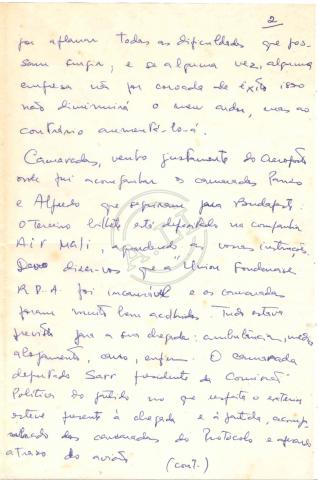 2
por aplanar todas as dificuldades que pos-
sam surgir, e se alguma vez, alguma
empresa não for coroada de êxito isso
não diminuirá o meu ardor, mas ao
contrário aumentá-lo-á.
Camaradas, venho justamente do Aeroporto
onde fui acompanhar os camaradas
e Alfredo que seguiram para Budapeste.
O terceiro bilhete está depositado na companhia
Air Mali, aguardando as vossas instruções.
Devo dizer-vos que a "Union Soudanaise
R.D.A. foi incansável e os camaradas
foram muito bem acolhidos. Tudo estava
previsto para a sua chegada: ambulância,
alojamento, carro, enfim. O camarada
deputado Sarr presidente da Comissão
Política do partido no que respeita o exterior
esteve presente à chegada e à partida, acompa-
nhado dos camaradas do Protocolo e
atraso do avião (cont.)